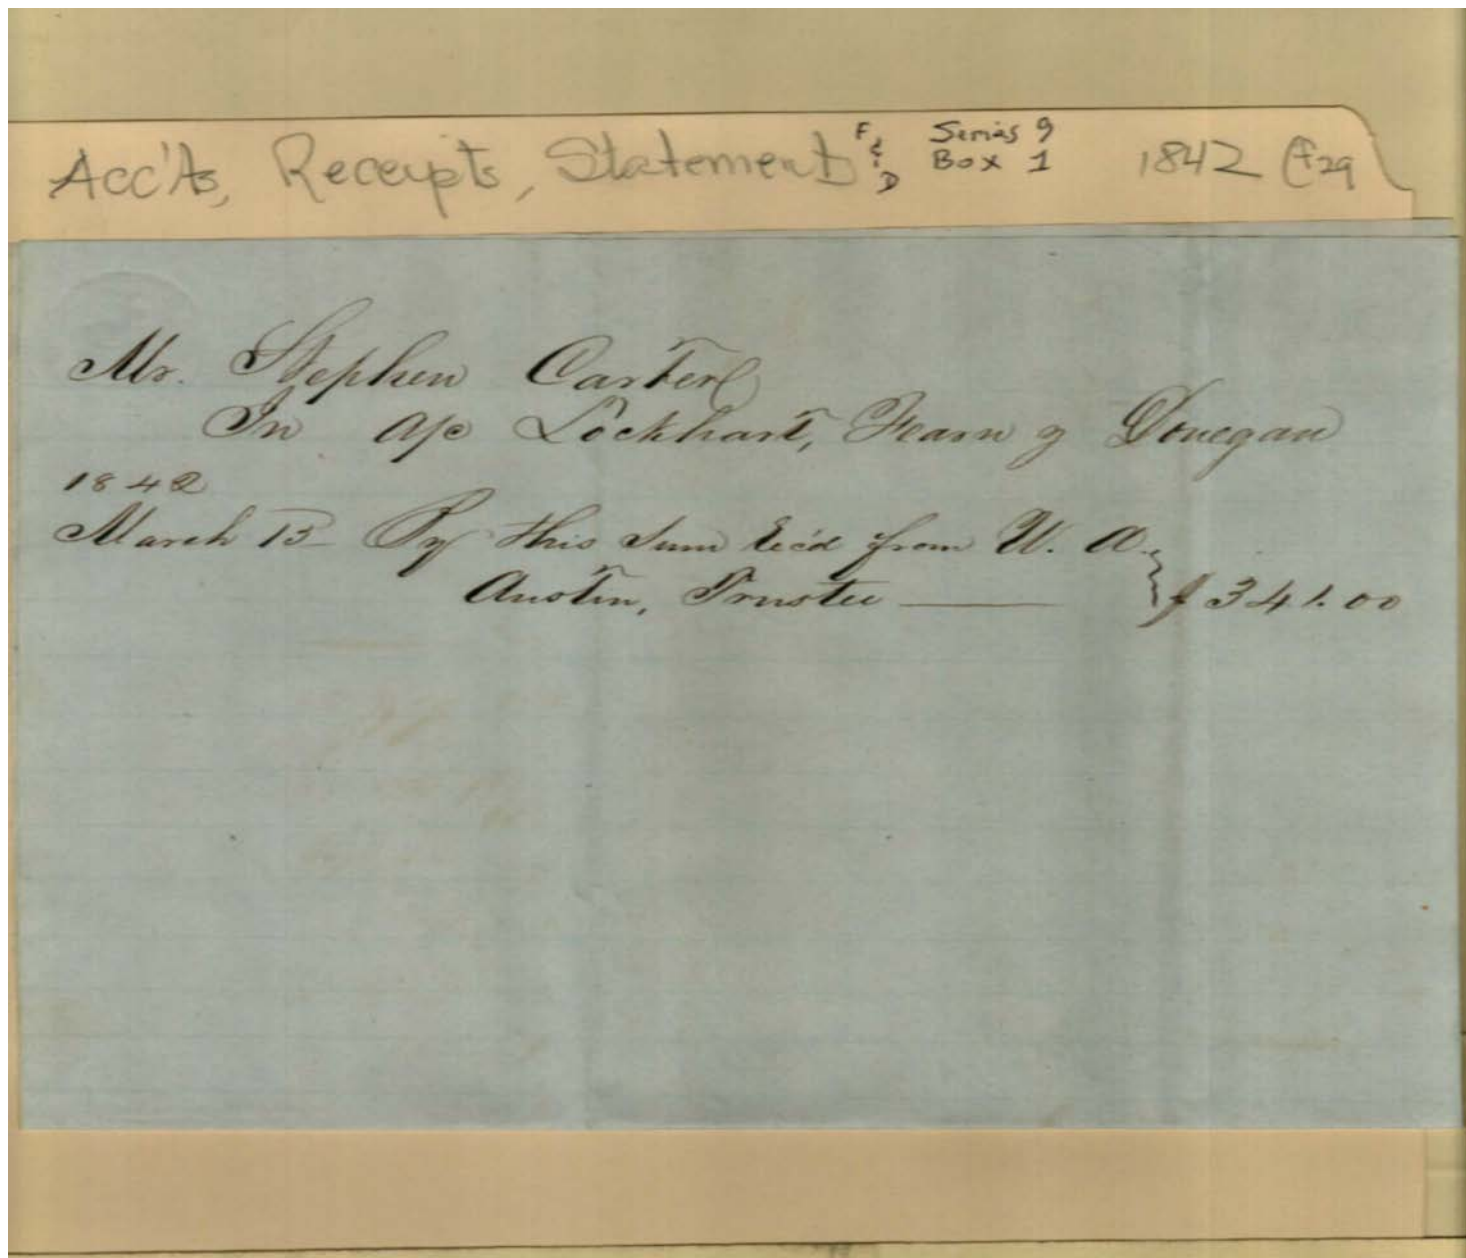 Acc'ts, Receipts, Statements F & D Series 9 Box 1 1842 (F29
Mr. Stephen Carter
In a/c Lockhart, Fearn & Donegan
1842
March 13 By this Sum Rec'd from W. A.
Austin, Trustee — } $341.00